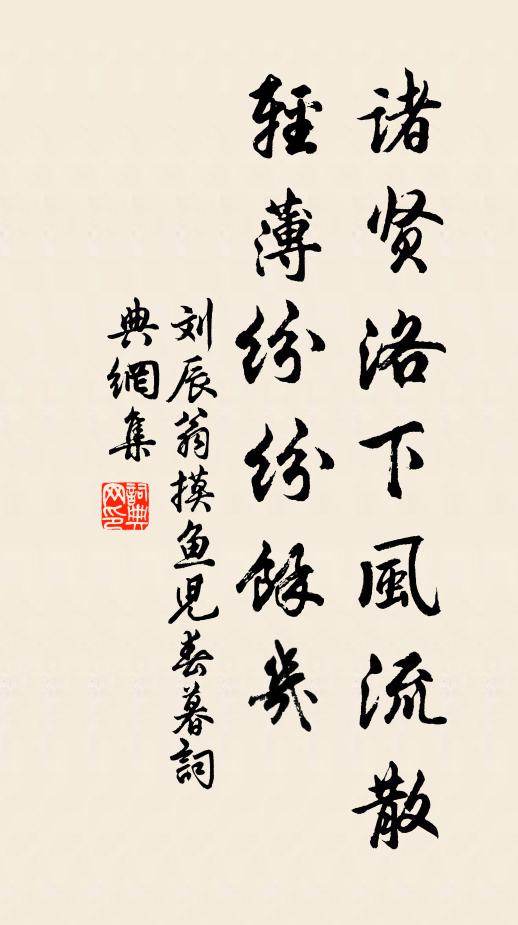 諸贤洛下風流散
輕薄纷纷餘幾
刘辰翁摸鱼児春暮詞
典網集
詞典网印